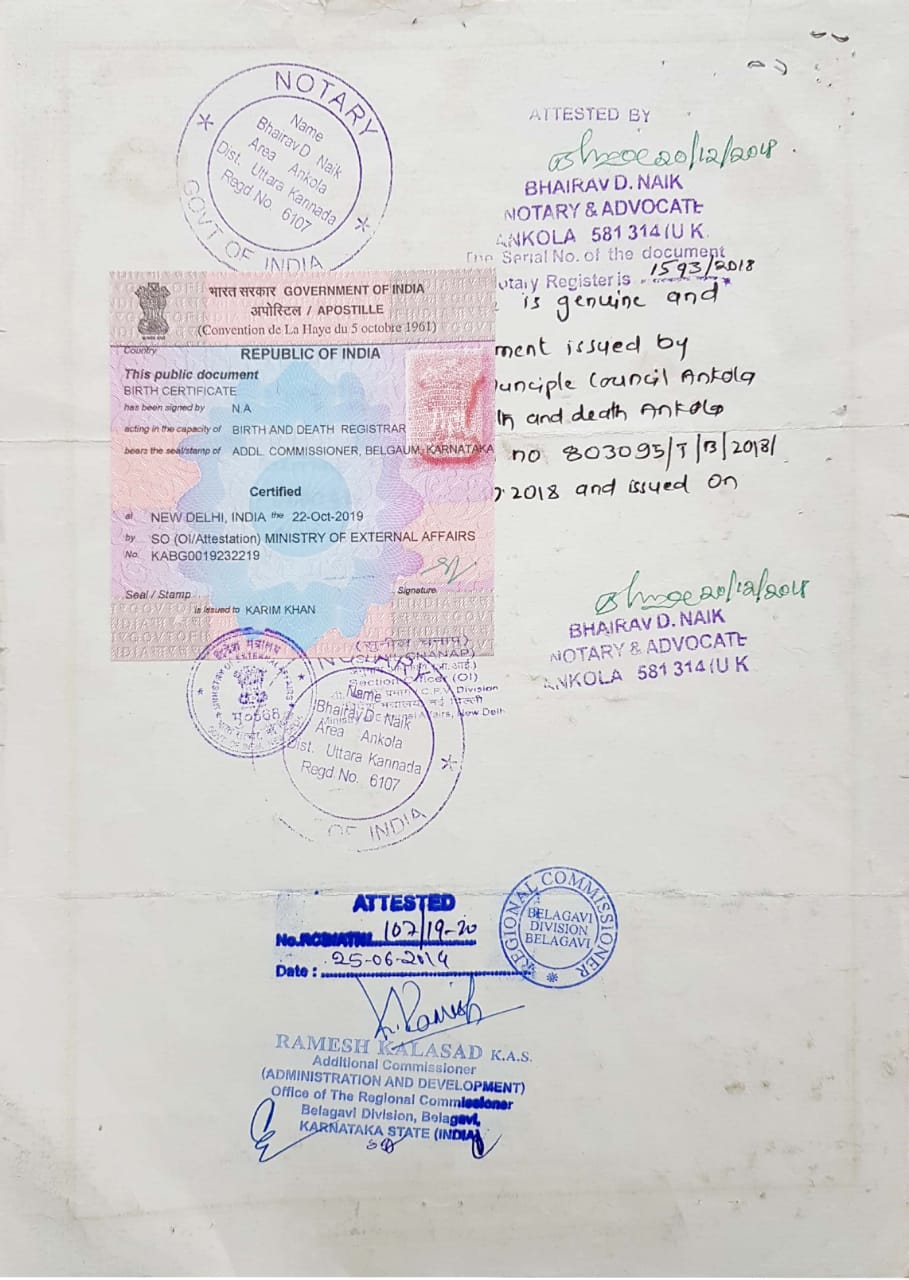 NOTARY
GOVT OF INDIA
Name
Bhairav D. Naik
Area Ankola
Dist. Uttara Kannada
Regd No. 6107
ATTESTED BY
20/12/2018
BHAIRAV D. NAIK
NOTARY & ADVOCATE
ANKOLA 581 314 (U K
The Serial No. of the document
otary Register is 1593/2018
is genuine and
ment issued by
unciple Council Ankola
and death Ankola
no 803095/T/B/2018/
2018 and issued on
भारत सरकार GOVERNMENT OF INDIA
अपोस्टिल / APOSTILLE
(Convention de La Haye du 5 octobre 1961)
Country REPUBLIC OF INDIA
This public document
BIRTH CERTIFICATE
has been signed by N.A
acting in the capacity of BIRTH AND DEATH REGISTRAR
bears the seal/stamp of ADDL. COMMISSIONER, BELGAUM, KARNATAKA
Certified
at NEW DELHI, INDIA the 22-Oct-2019
by SO (OI/Attestation) MINISTRY OF EXTERNAL AFFAIRS
No. KABG0019232219
Signature
Seal / Stamp
is issued to KARIM KHAN
20/12/2018
BHAIRAV D. NAIK
NOTARY & ADVOCATE
ANKOLA 581 314 (U K
Section Officer (OI)
C.P.V. Division
Affairs, New Delh
Name
Bhairav D. Naik
Area Ankola
Dist. Uttara Kannada
Regd No. 6107
OF INDIA
ATTESTED
No. 107/19-20
Date : 25-06-2019
REGIONAL COMMISSIONER
BELAGAVI
DIVISION
BELAGAVI
RAMESH KALASAD K.A.S.
Additional Commissioner
(ADMINISTRATION AND DEVELOPMENT)
Office of The Regional Commissioner
Belagavi Division, Belagavi,
KARNATAKA STATE (INDIA)